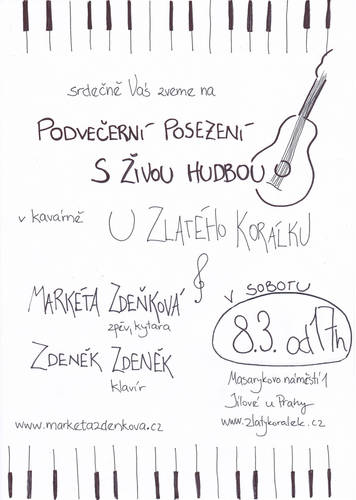 srdečně Vás zveme na
PODVEČERNÍ POSEZENÍ
S ŽIVOU HUDBOU
v kavárně
U ZLATÉHO KORÁLKU
MARKÉTA ZDEŇKOVÁ
zpěv, kytara
ZDENĚK ZDENĚK
klavír
www.marketazdenkova.cz
V SOBOTU
8.3. od 17h
Masarykovo náměstí 1
Jílové u Prahy
www.zlatykoralek.cz